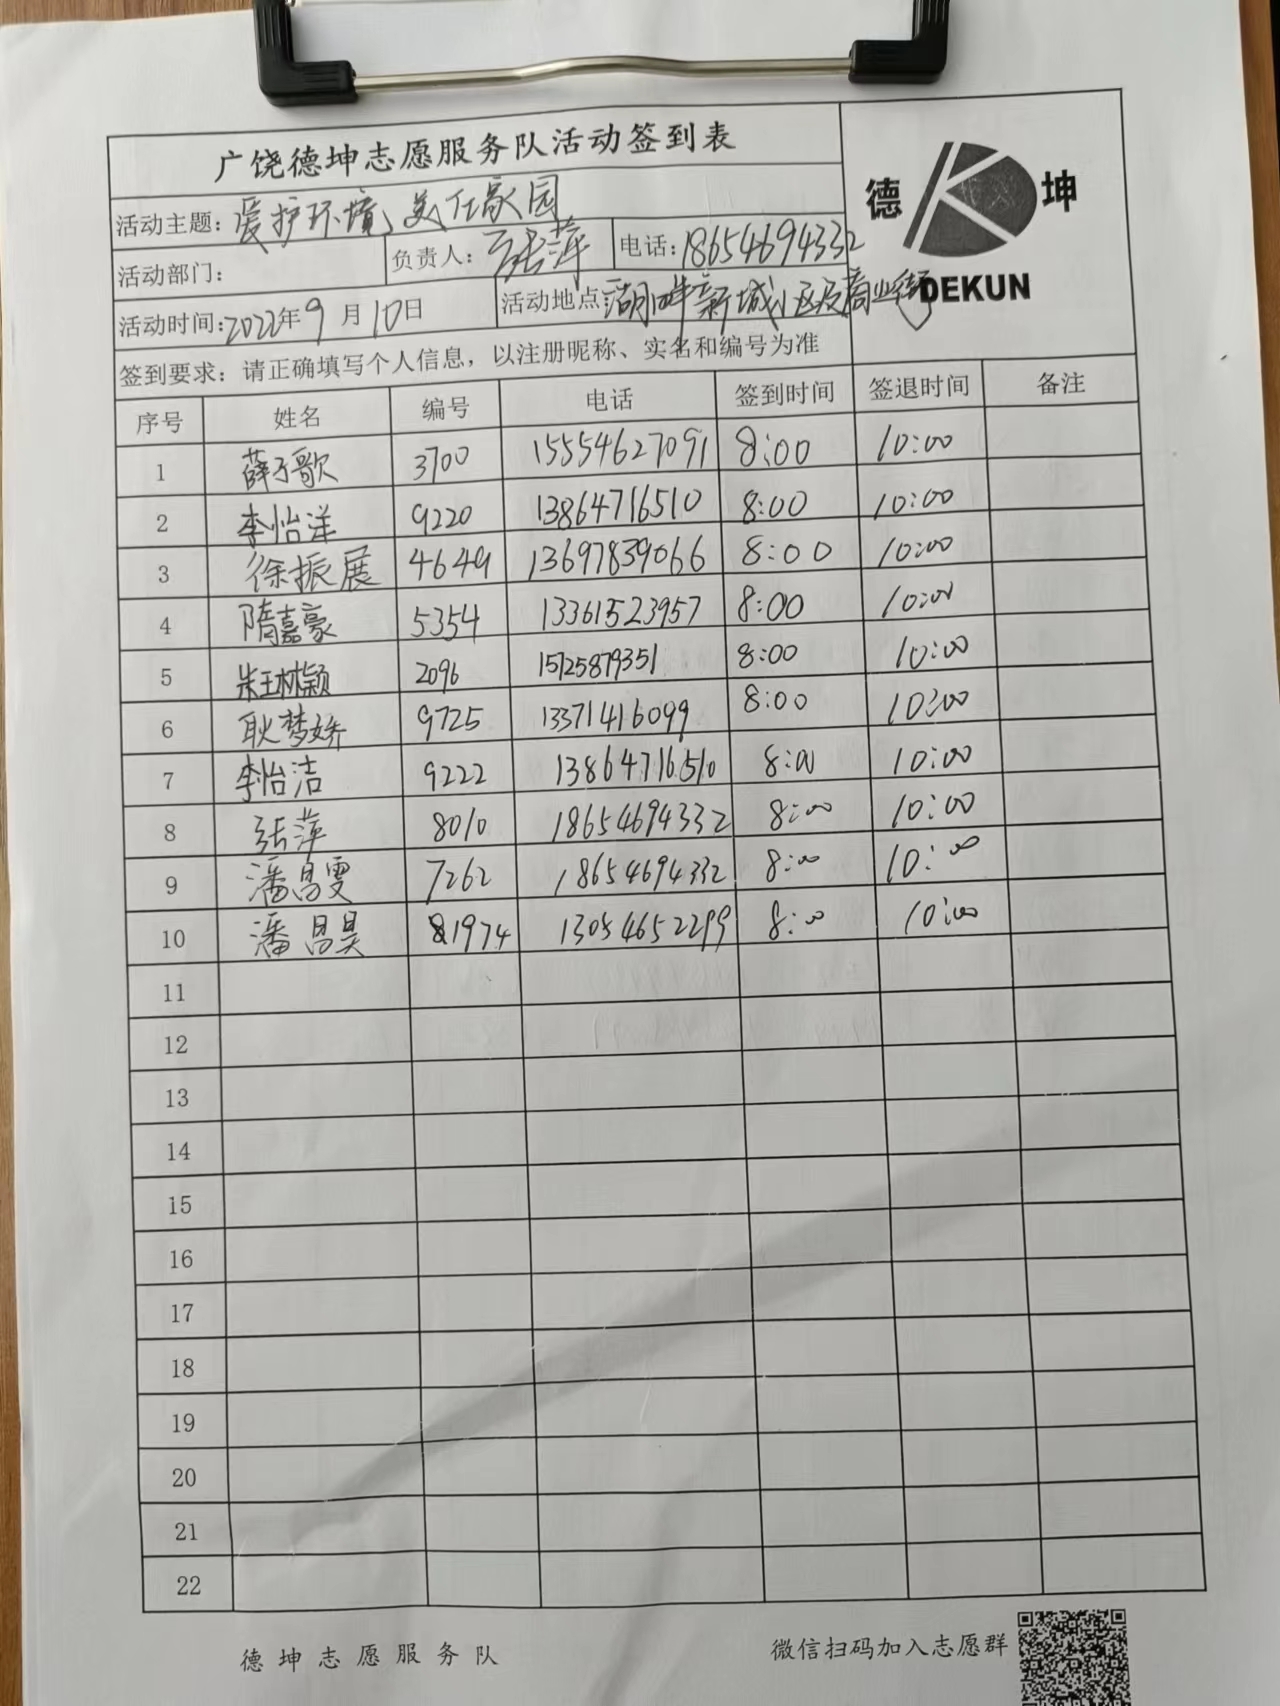 广饶德坤志愿服务队活动签到表
德 坤
DEKUN
活动主题：爱护环境，美化家园
活动部门： 负责人：张萍 电话：18654694332
活动时间：2022年9月10日 活动地点：湖畔新城小区及商业街
签到要求：请正确填写个人信息，以注册昵称、实名和编号为准
序号 姓名 编号 电话 签到时间 签退时间 备注
1 薛子歌 3700 15554627091 8:00 10:00
2 李怡洋 9220 13864716510 8:00 10:00
3 徐振展 4649 13697839066 8:00 10:00
4 隋嘉豪 5354 13361523957 8:00 10:00
5 朱琳颖 2096 15125879351 8:00 10:00
6 耿梦娇 9725 13371416099 8:00 10:00
7 李怡洁 9222 13864716510 8:00 10:00
8 张萍 8010 18654694332 8:00 10:00
9 潘昌雯 7262 18654694332 8:00 10:00
10 潘昌昊 81974 13054652299 8:00 10:00
11
12
13
14
15
16
17
18
19
20
21
22
德坤志愿服务队 微信扫码加入志愿群